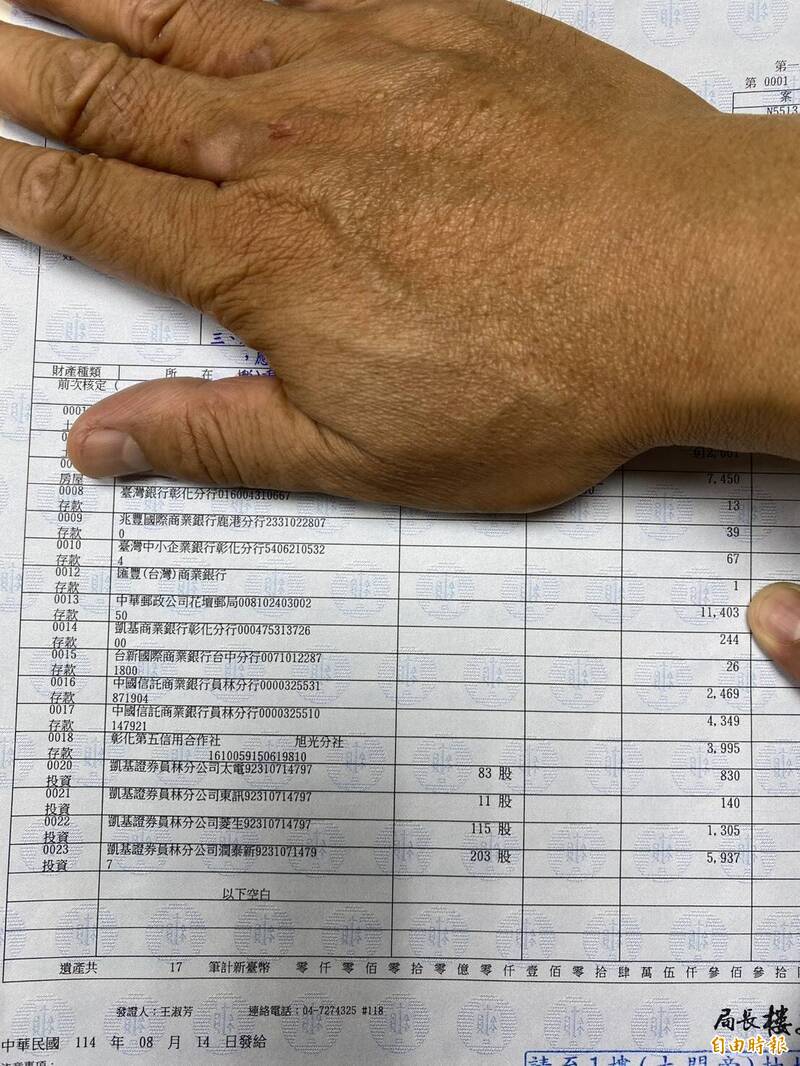 第一
第 0001
案
N5513
三、
，應
財產種類 所 在
前次核定（
0001
912,001
房屋 7,450
0008 臺灣銀行彰化分行016004310667
存款 13
0009 兆豐國際商業銀行鹿港分行2331022807
存款 0 39
0010 臺灣中小企業銀行彰化分行5406210532
存款 4 67
0012 匯豐(台灣)商業銀行
存款 1
0013 中華郵政公司花壇郵局008102403002
存款 50 11,403
0014 凱基商業銀行彰化分行000475313726
存款 00 244
0015 台新國際商業銀行台中分行0071012287
存款 1800 26
0016 中國信託商業銀行員林分行0000325531
存款 871904 2,469
0017 中國信託商業銀行員林分行0000325510
存款 147921 4,349
0018 彰化第五信用合作社 旭光分社
存款 1610059150619810 3,995
0020 凱基證券員林分公司太電92310714797 83 股
投資 830
0021 凱基證券員林分公司東訊92310714797 11 股
投資 140
0022 凱基證券員林分公司菱生92310714797 115 股
投資 1,305
0023 凱基證券員林分公司潤泰新9231071479 203 股
投資 7 5,937
以下空白
遺產共 17 筆計新臺幣 零 仟 零 佰 零 拾 零 億 零 仟 壹 佰 零 拾 肆 萬 伍 仟 參 佰 參 拾
發證人：王淑芳 連絡電話：04-7274325 #118
局長樓
中華民國 114 年 08 月 14 日發給
自由時報
注意事項：
請至1樓(大門旁)